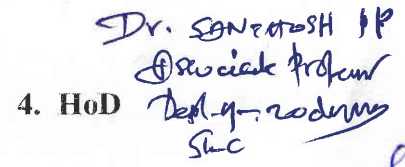 Dr. SANTHOSH PP
Associate Professor
4. HoD Dept. of Zoology
SLC